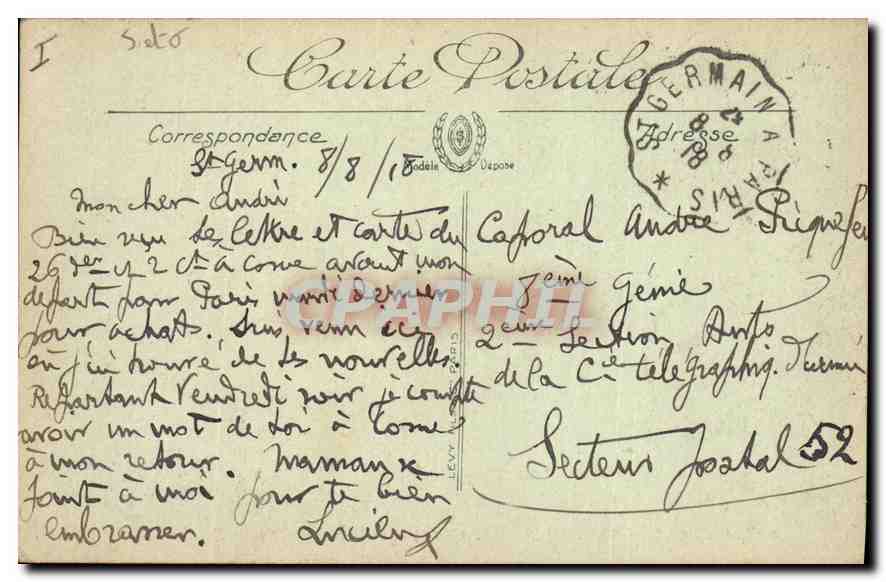 I
Carte Postale
Correspondance
Modèle Déposé
Adresse
ST GERMAIN A PARIS
8 - 8
18
St Germ. 8/8/18
Mon cher André
Bien reçu tes lettre et carte du
26 der et 2 ct à Cosne avant mon
départ pour Paris mardi dernier
pour achats. Suis venu ici
où j'ai trouvé de tes nouvelles
Repartant Vendredi soir je compte
avoir un mot de toi à Cosne
à mon retour. Maman se
joint à moi pour te bien
embrasser. Lucien
Caporal André
8ème Génie
2eme Section Auto
de la Cie télégraphiq.
Secteur postal 52
LEVY FILS PARIS
CPAPHIL